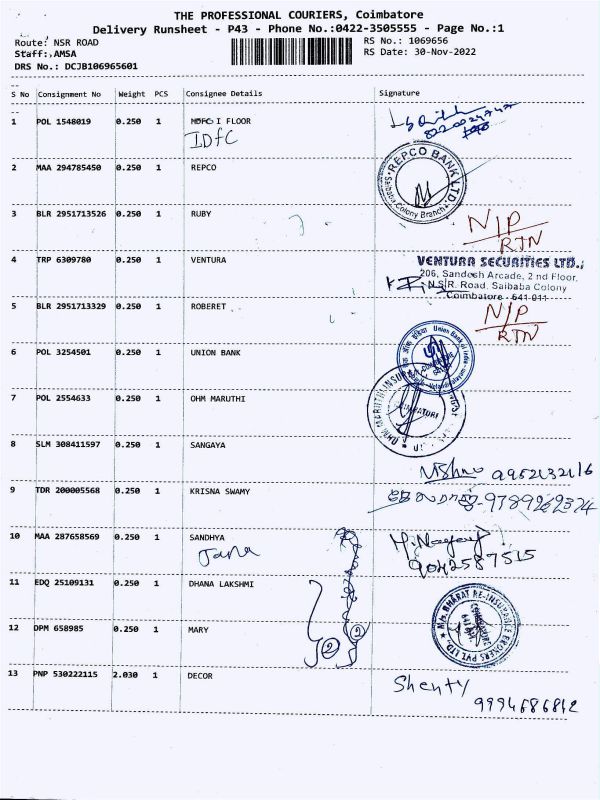 THE PROFESSIONAL COURIERS, Coimbatore
Delivery Runsheet - P43 - Phone No.:0422-3505555 - Page No.:1
Route: NSR ROAD
RS No.: 1069656
Staff:,AMSA
RS Date: 30-Nov-2022
DRS No.: DCJB106965601
S No Consignment No Weight PCS Consignee Details Signature
1 POL 1548019 0.250 1 I FLOOR
IDFC
2 MAA 294785450 0.250 1 REPCO
REPCO BANK LTD.
Saibaba Colony Branch
3 BLR 2951713526 0.250 1 RUBY
N/P
RTN
4 TRP 6309780 0.250 1 VENTURA
VENTURA SECURITIES LTD.,
206, Sandesh Arcade, 2 nd Floor,
N.S.R. Road, Saibaba Colony
Coimbatore - 641 011
5 BLR 2951713329 0.250 1 ROBERET
N/P
RTN
6 POL 3254501 0.250 1 UNION BANK
Union Bank of India
7 POL 2554633 0.250 1 OHM MARUTHI
8 SLM 308411597 0.250 1 SANGAYA
Vishnu
9 TDR 200005568 0.250 1 KRISNA SWAMY
10 MAA 287658569 0.250 1 SANDHYA
Jana
9042587515
11 EDQ 25109131 0.250 1 DHANA LAKSHMI
M/s. BHARAT RE-INSURANCE BROKERS PVT LTD.
12 DPM 658985 0.250 1 MARY
2
2
13 PNP 530222115 2.030 1 DECOR
Shenty
9994686842